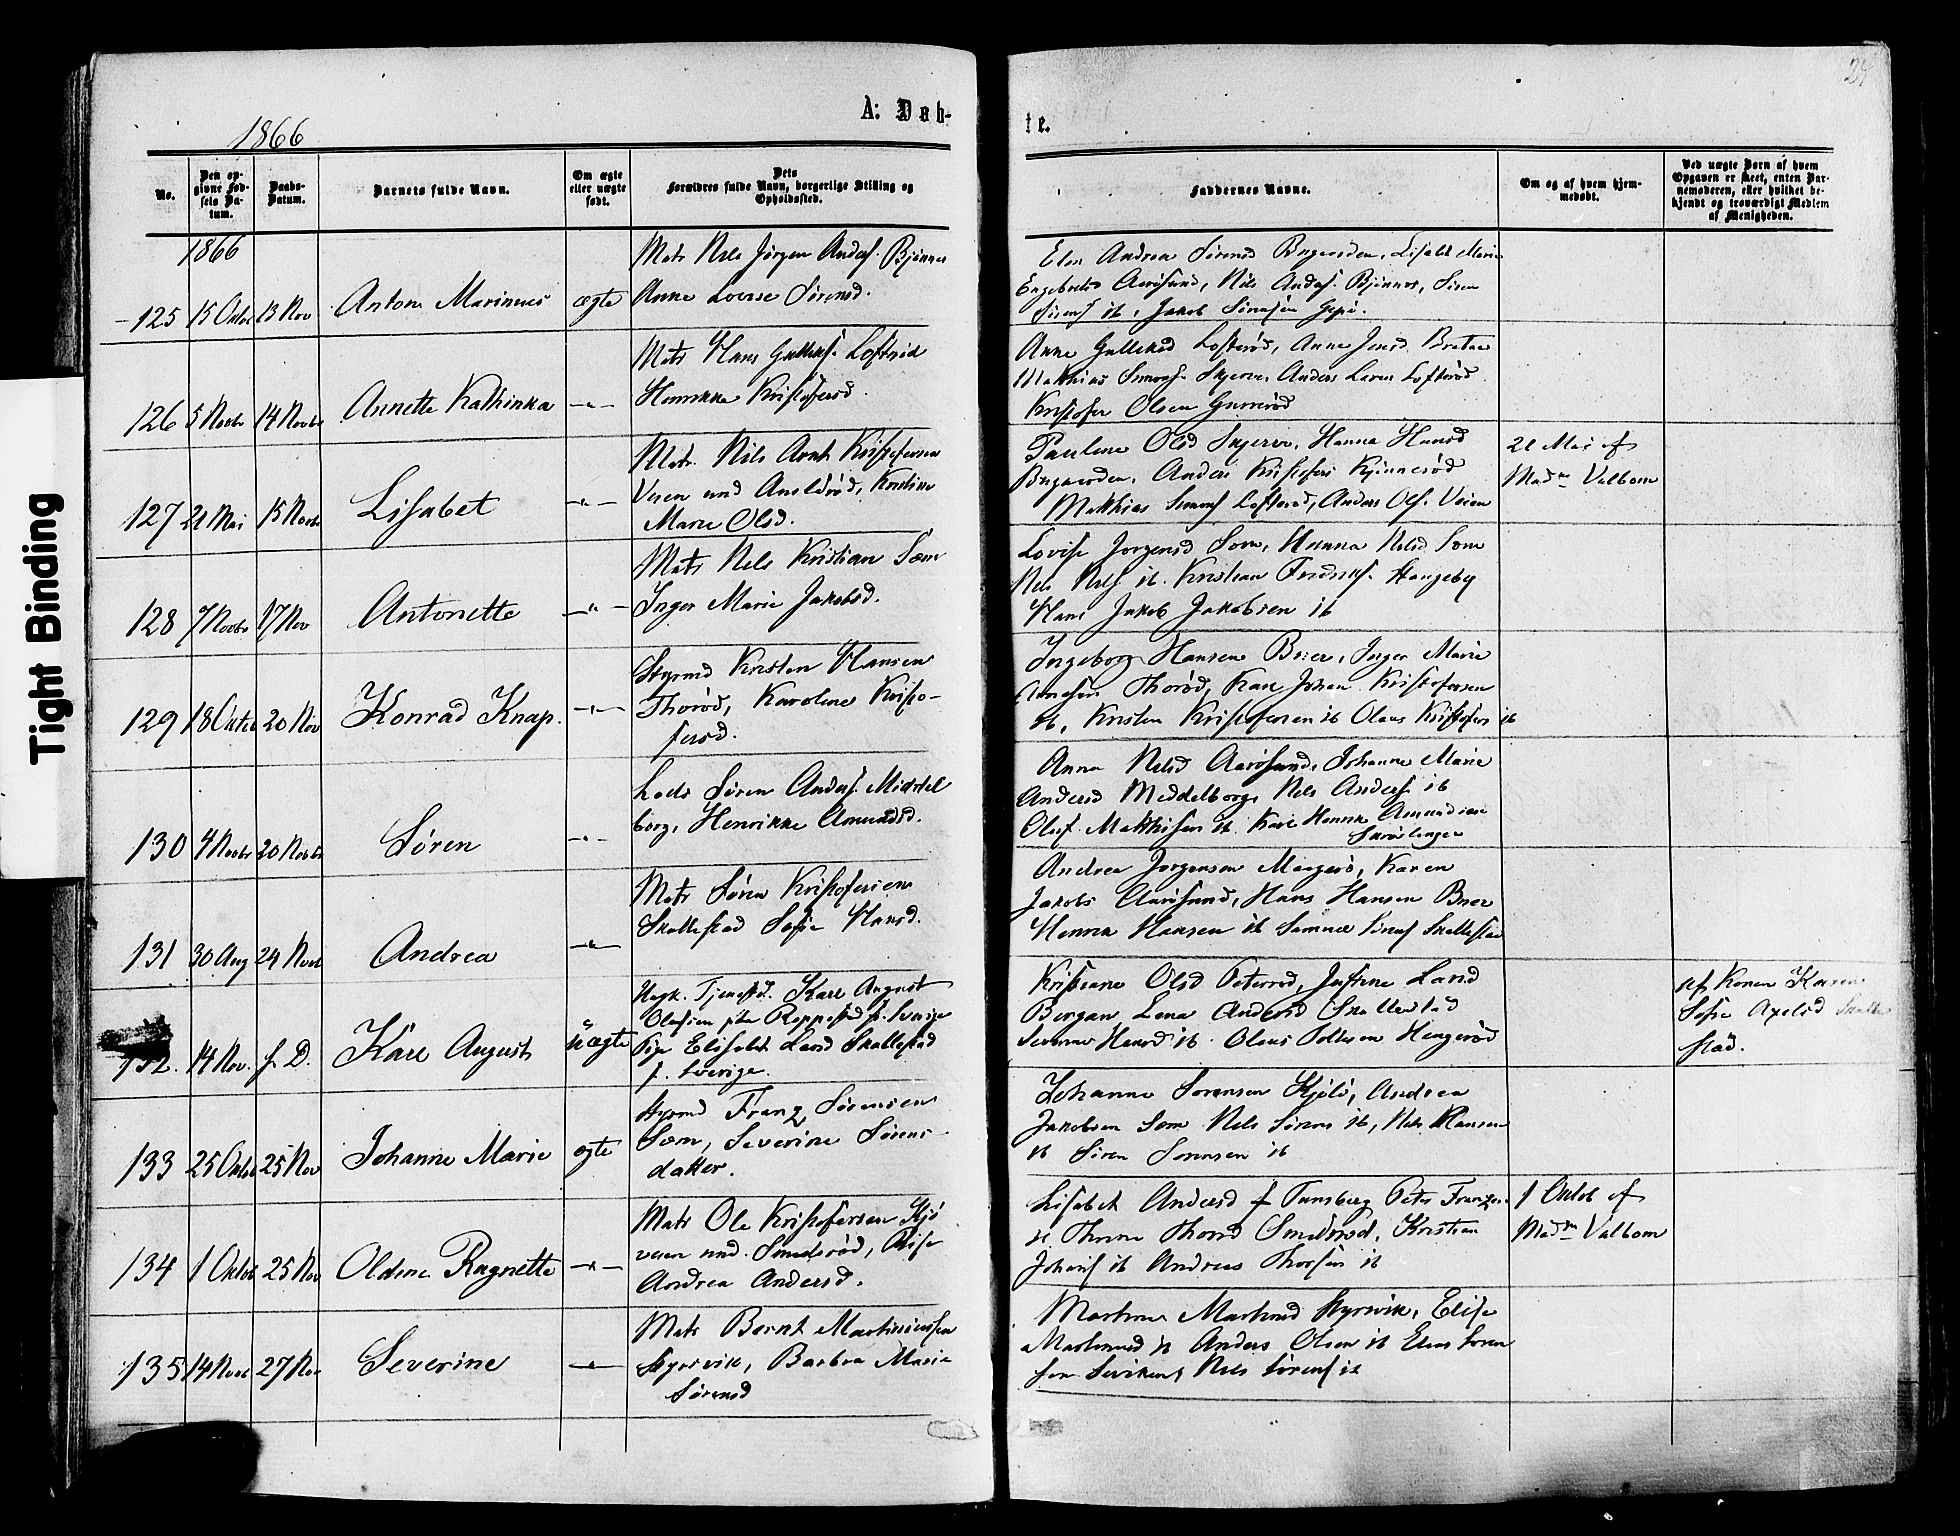 Tight Binding
1866
A: Døb-
te.
24
No.
Den op-
givne Fød-
sels Da-
tum.
Daabs-
Datum.
Barnets fulde Navn.
Om ægte
eller uægte
født.
Dets
Forældres fulde Navn, borgerlige Stilling og
Opholdssted.
Faddernes Navne.
Om og af hvem hjem-
medøbt.
Ved uægte Barn af hvem
Opgaven er skeet, enten Bar-
nemoderen, eller hvilket be-
kjendt og troværdigt Medlem
af Menigheden.
1866
125 15 Oktbr 13 Nov Anton Marinius ægte
Mats Nils Jørgen Anders. Bjønnes
Anne Lovise Sørensd.
Else Andrea Sørensd Bryggeriden, Lisabet Marie
Aarøsund, Nils Anders. Bjønnes, Søren
Sørens ib, Jakob Simonsen
126 5 Novbr 14 Novbr Annette Kathinka -"-
Mats Hans Gulliks. Lofterød
Henrikke Kristofersd.
Anne Gulliksd Lofterød, Anne Jensd.
Matthias Simons. Skjerve, Anders Larsn Lofterød
Kristofer Olsen
127 21 Mai 15 Novbr Lisabet -"-
Mats. Nils Arnt Kristofersen
Veien und Kristine
Marie Olsd.
Pauline Olsd Skjerve, Hanna Hansd
Anders Kristofers
Matthias Simons Lofterød, Anders Ols. Veien
21 Mai af
Madm Valbom
128 7 Novbr 17 Nov Antonette -"-
Mats Nils Kristian Sem
Inger Marie Jakobsd.
Lovise Jørgensd Sem, Hanna Nilsd Sem
Nils Nils ib. Kristian Fredriks.
Hans Jakob Jakobsen ib
129 18 Oktb 20 Nov Konrad Knap. -"-
Styrmd Kristen Hansen
Thorød, Karoline Kristo-
fersd.
Ingeborg Hansen Brier, Inger Marie
Thorød, Karl Johan Kristofersen
ib, Kristen Kristofersen ib Olaus Kristofers ib
130 4 Novbr 20 Novbr Søren -"-
Lods Søren Anders. Middel
borg, Henrikke Amundsd.
Anna Nilsd Aarøsund, Johanne Marie
Andersd Meddelborg, Nils Anders. ib
Oluf Matthisen ib. Karl Henrik Amundsen
131 30 Aug 24 Novb Andrea -"-
Mats Søren Kristofersen
Skallestad Sofie Hansd.
Andrea Jørgensen Magerø, Karen
Jakobs Aarøsund, Hans Hansen Brier
Henrik Hansen ib Skallestad
132. 14 Nov. f. D. Karl August uægte
Ungk. Tjenestd. Karl August
Olufsen f. Sverige
Pige Elisabet Larsd Skallestad
f. Sverige.
Kristiane Olsd Justine Larsd
Bergan, Lena Andersd Skallestad
Severine Hansd ib. Olaus Hengerød
af Konen Karen
Sofie Axelsd Skalle
stad.
133 25 Oktb 25 Nov Johanne Marie ægte
Styrmd Franz Sørensen
Sem, Severine Sørens-
datter.
Johanne Sørensen Kjølø, Andrea
Jakobsen Sem Nils Sørens ib, Nils Hansen
ib Søren Sørensen ib
134 1 Oktob 25 Nov Oldine Ragnette -"-
Mats Ole Kristofersen Kjø
veien und. Smidsrød, Pige
Andrea Andersd.
Lisabet Andersd f Tunsberg Peter Franzen
ib Thrine Thorsd Smidsrød, Kristian
Johans ib Andreas Thorsen ib
1 Oktob af
Madm Valbom
135 14 Novb 27 Nov Severine -"-
Mats Bernt Martiniussen
Styrsvik, Barbra Marie
Sørensd
Martine Martinsd Styrsvik, Elise
Martinsd ib Anders Olsen ib Elias Soren
sen Nils Sørens ib